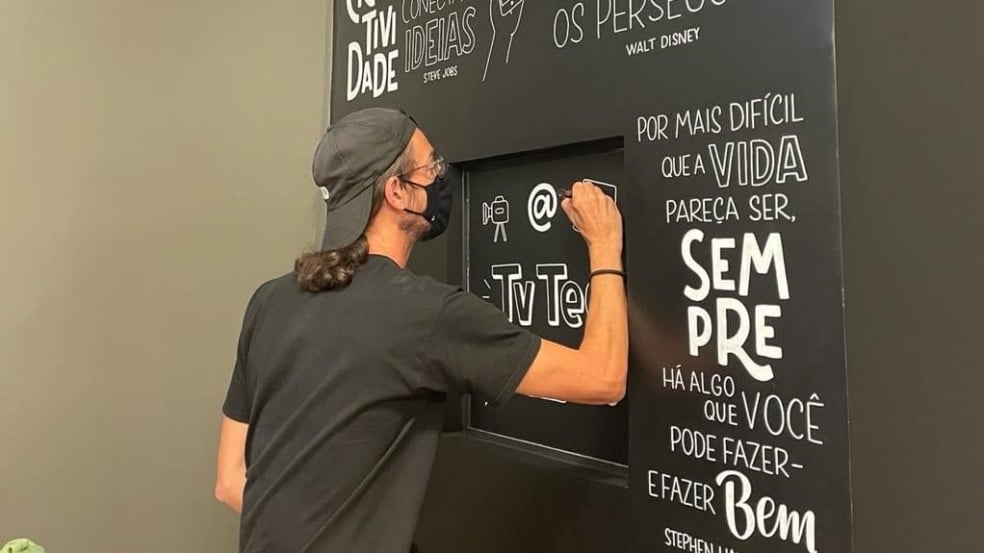 TIVI
DADE
IDEIAS
STEVE JOBS
OS
WALT DISNEY
@
TV
POR MAIS DIFÍCIL
QUE A VIDA
PAREÇA SER,
SEM
PRE
HÁ ALGO
QUE VOCÊ
PODE FAZER-
E FAZER Bem
STEPHEN